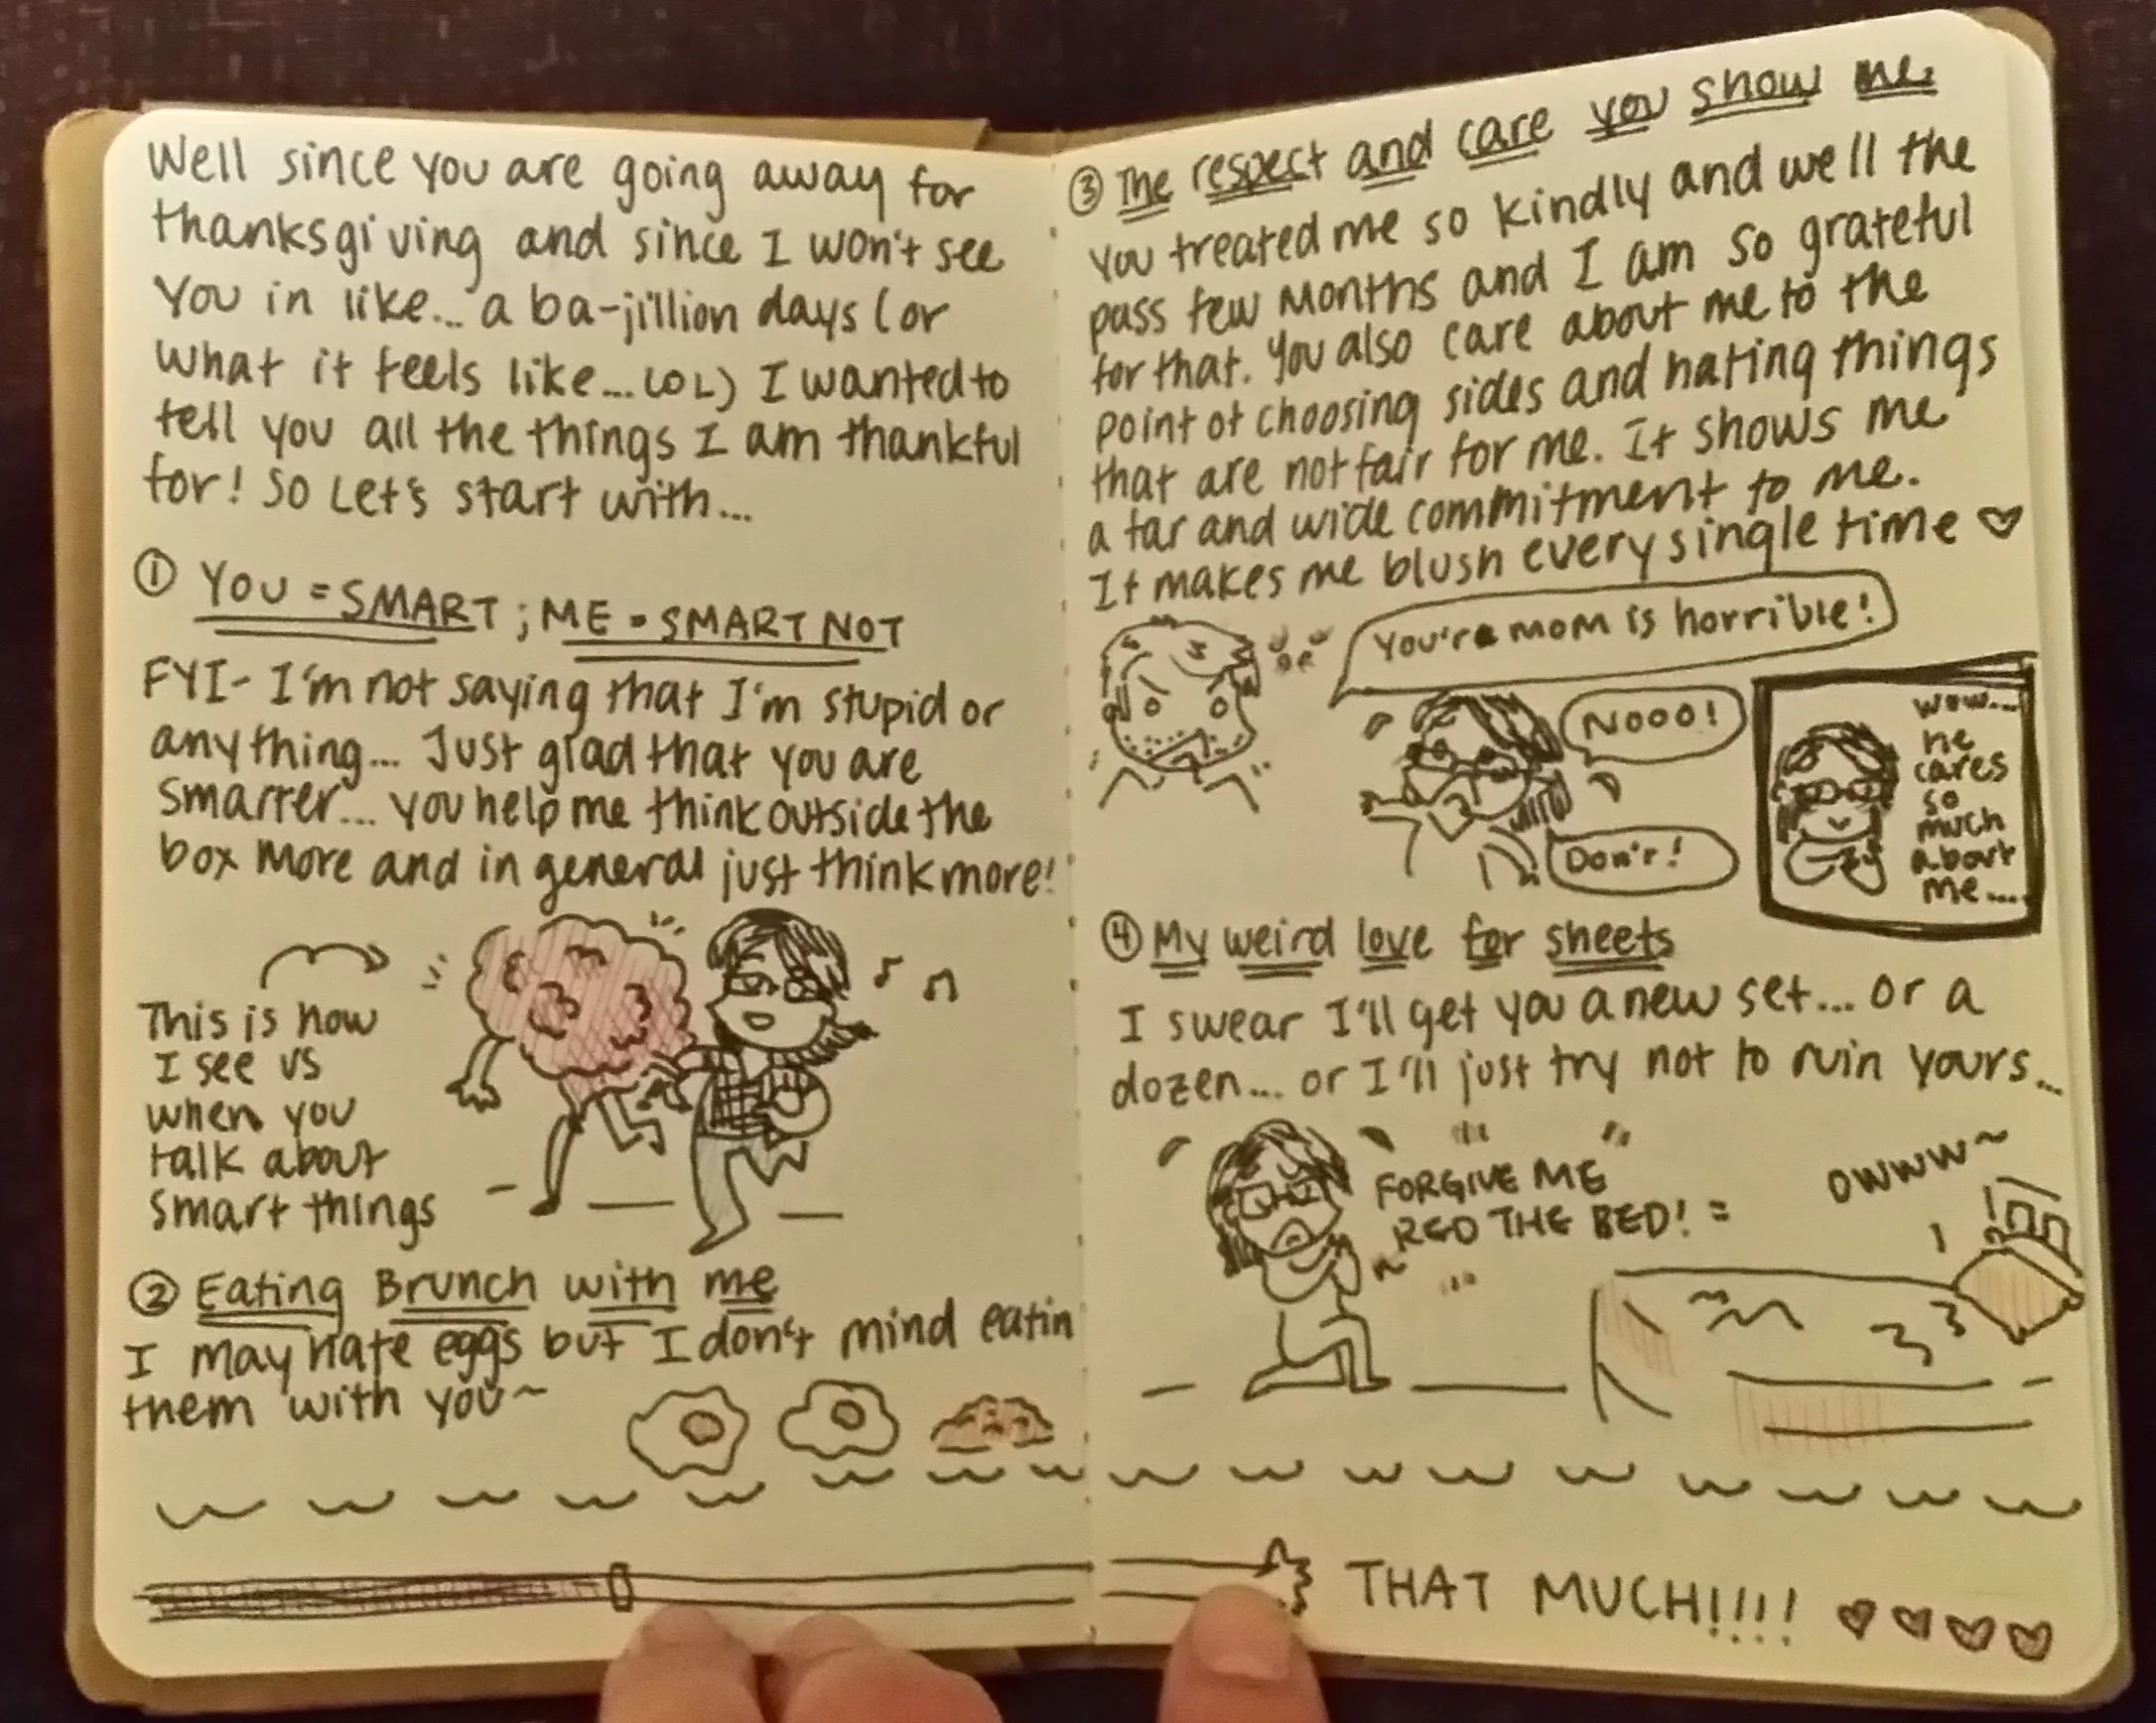 Well since you are going away for
thanksgiving and since I won't see
you in like... a ba-jillion days (or
what it feels like... LOL) I wanted to
tell you all the things I am thankful
for! So Let's start with...
① YOU = SMART; ME = SMART NOT
FYI- I'm not saying that I'm stupid or
anything... Just glad that you are
smarter... you help me think outside the
box more and in general just think more!
This is how
I see us
when you
talk about
smart things
② Eating Brunch with me
I may hate eggs but I don't mind eatin
them with you~
③ The respect and care you show me
You treated me so kindly and well the
pass few months and I am so grateful
for that. You also care about me to the
point of choosing sides and hating things
that are not fair for me. It shows me
a far and wide commitment to me.
It makes me blush every single time ♡
You're mom is horrible!
Nooo!
Don't!
wow...
he
cares
so
much
about
me....
④ My weird love for sheets
I swear I'll get you a new set... or a
dozen... or I'll just try not to ruin yours...
FORGIVE ME
RED THE BED! =
OWWW~
THAT MUCH!!!! ♡ ♡ ♡ ♡